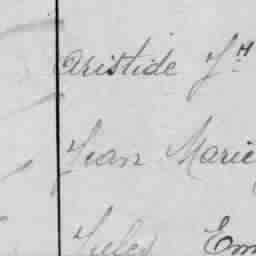 Aristide Jh
Jean Marie
Jules Em